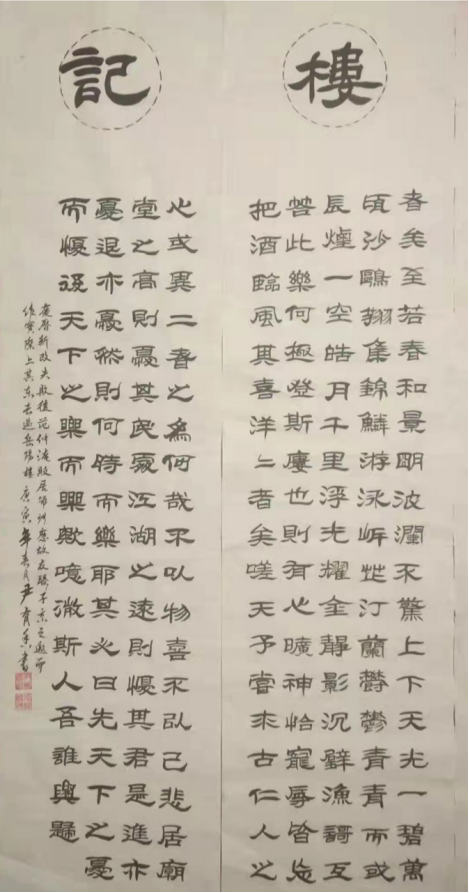 樓
者矣至若春和景明波瀾不驚上下天光一碧萬
頃沙鷗翔集錦鱗游泳岸芷汀蘭鬱鬱青青而或
長煙一空皓月千里浮光耀金靜影沉璧漁謌互
答此樂何極登斯樓也則有心曠神怡寵辱皆忘
把酒臨風其喜洋〻者矣嗟夫予嘗求古仁人之
記
心或異二者之為何哉不以物喜不以己悲居廟
堂之高則憂其民處江湖之遠則憂其君是進亦
憂退亦憂然則何時而樂耶其必曰先天下之憂
而憂後天下之樂而樂歟噫微斯人吾誰與歸
慶曆新政失敗後范仲淹貶居鄧州應故友滕子京之邀而
作實際上其未去過岳陽樓庚寅年春月尹書